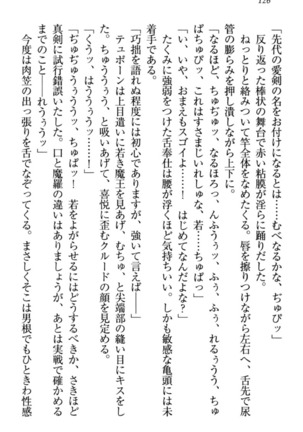 「先代の愛剣の名をお付けになるとは……むべなるかな、ちゅぴッ」
反り返った棒状の舞台で赤い粘膜が淫らに踊りだした。
ねっとりと絡みついて竿全体をなめたくる。唇を擦りつけながら左右へ、舌先で尿
管の膨らみを押し潰しながら上下に。
「なるほど、ちゅぢゅッ、なるほろっ、んふぅうッ、ふぅ、ふぅ、れるぅうう、ちゅ
ぱちゅぴッ、これはすさまじいれしゅな、若……ちゅぱっ」
「い、いや、おまえもスゴイよ……！　はじめてなんだよな？」
たくみに強弱をつけた舌奉仕は腰が浮くほど気持ちいい。しかも敏感な亀頭には未
着手である。
「巧拙を語れぬ程度には初心でありますが、強いて言えば――」
テュポーンは上目遣いに若き魔王を見あげ、むちゅ、と尖端部の縫い目にキスをし
た。ちゅううぅう、と吸いあげて、喜悦に歪むクルードの顔を見定める。
「くうッ、はううぅうッ……！」
「ちゅぢゅうぅうッ、ちゅぱッ！　若をよがらせるにはどうするべきか、さきほど
真剣に試行錯誤いたした。口と魔羅の違いはありましょうが、あとは実戦で確かめる
までのこと――れうぅうッ」
今度は肉笠の出っ張りを舌でなぞってくる。まさしくそこは男根でもひときわ性感